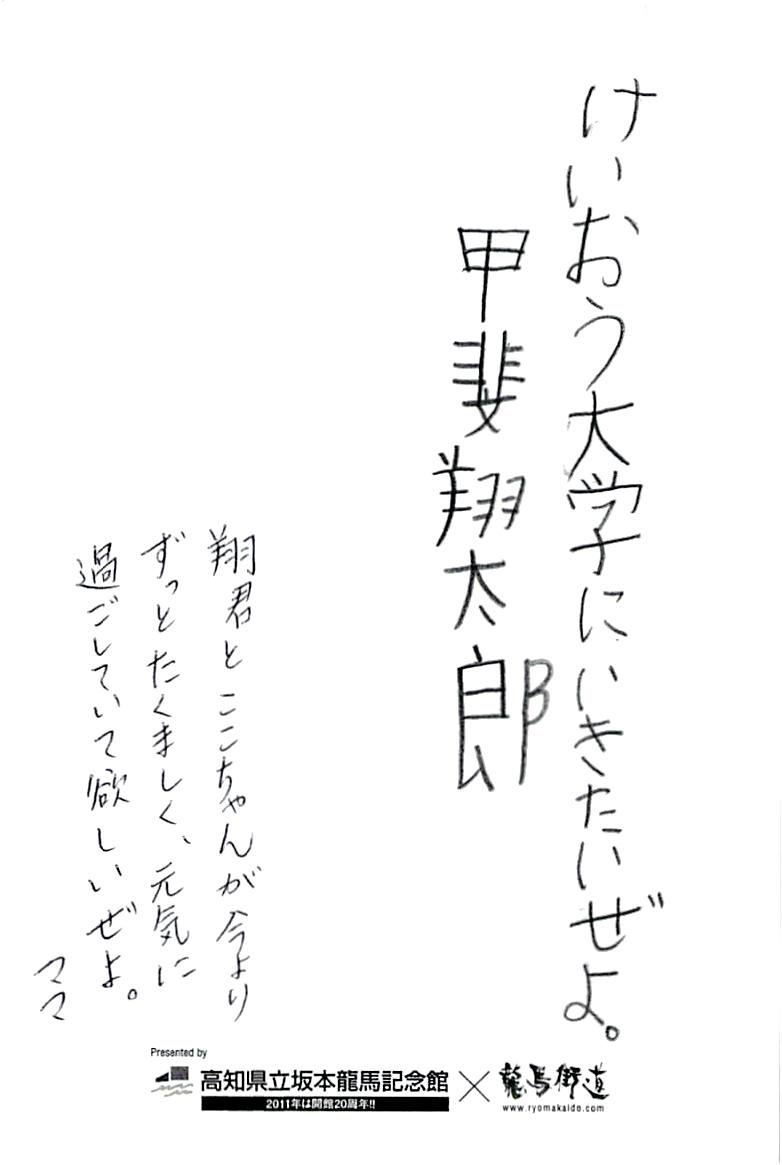 けいおう大学にいきたいぜよ。
甲斐翔太郎
翔君とここちゃんが今より
ずっとたくましく、元気に
過ごしていて欲しいぜよ。
ママ
Presented by
高知県立坂本龍馬記念館×龍馬街道
2011年は開館20周年!!
www.ryomakaido.com